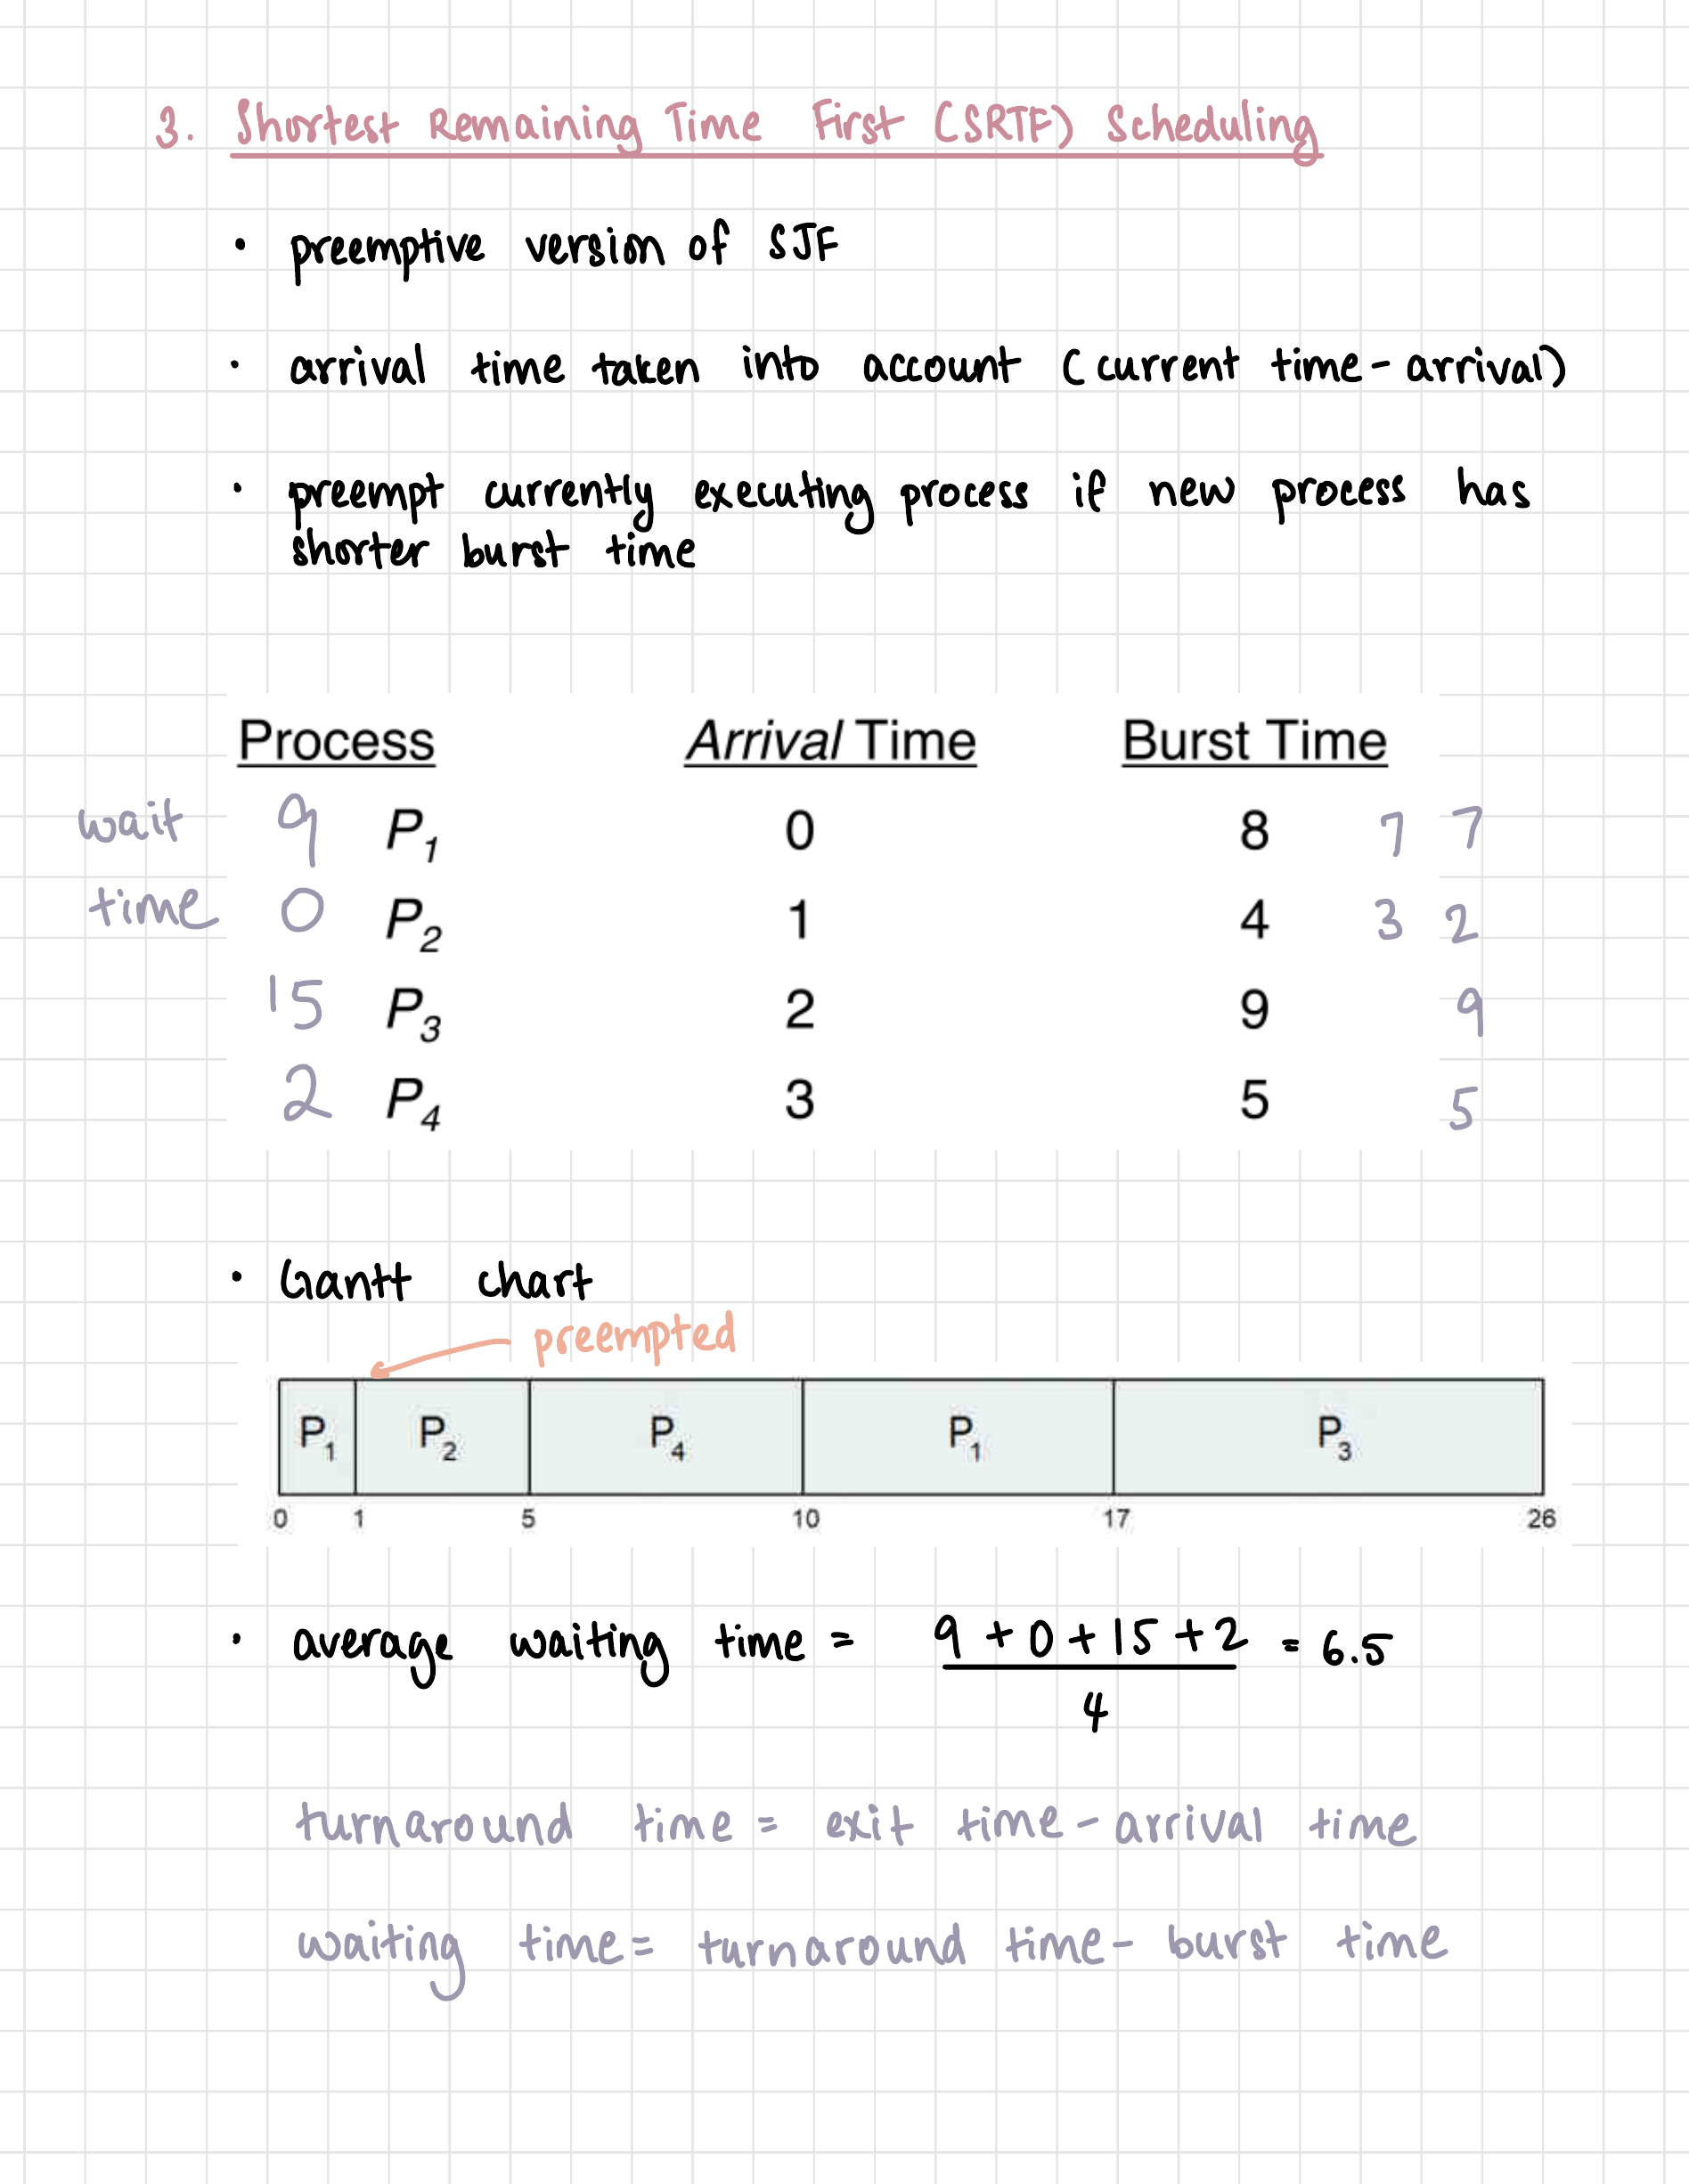 3. Shortest Remaining Time First (SRTF) Scheduling
• preemptive version of SJF
• arrival time taken into account (current time - arrival)
• preempt currently executing process if new process has
shorter burst time
Process Arrival Time Burst Time
wait 9 P1 0 8 7 7
time 0 P2 1 4 3 2
15 P3 2 9 9
2 P4 3 5 5
• Gantt chart
preempted
P1 P2 P4 P1 P3
0 1 5 10 17 26
• average waiting time = 9 + 0 + 15 + 2 = 6.5
4
turnaround time = exit time - arrival time
waiting time = turnaround time - burst time